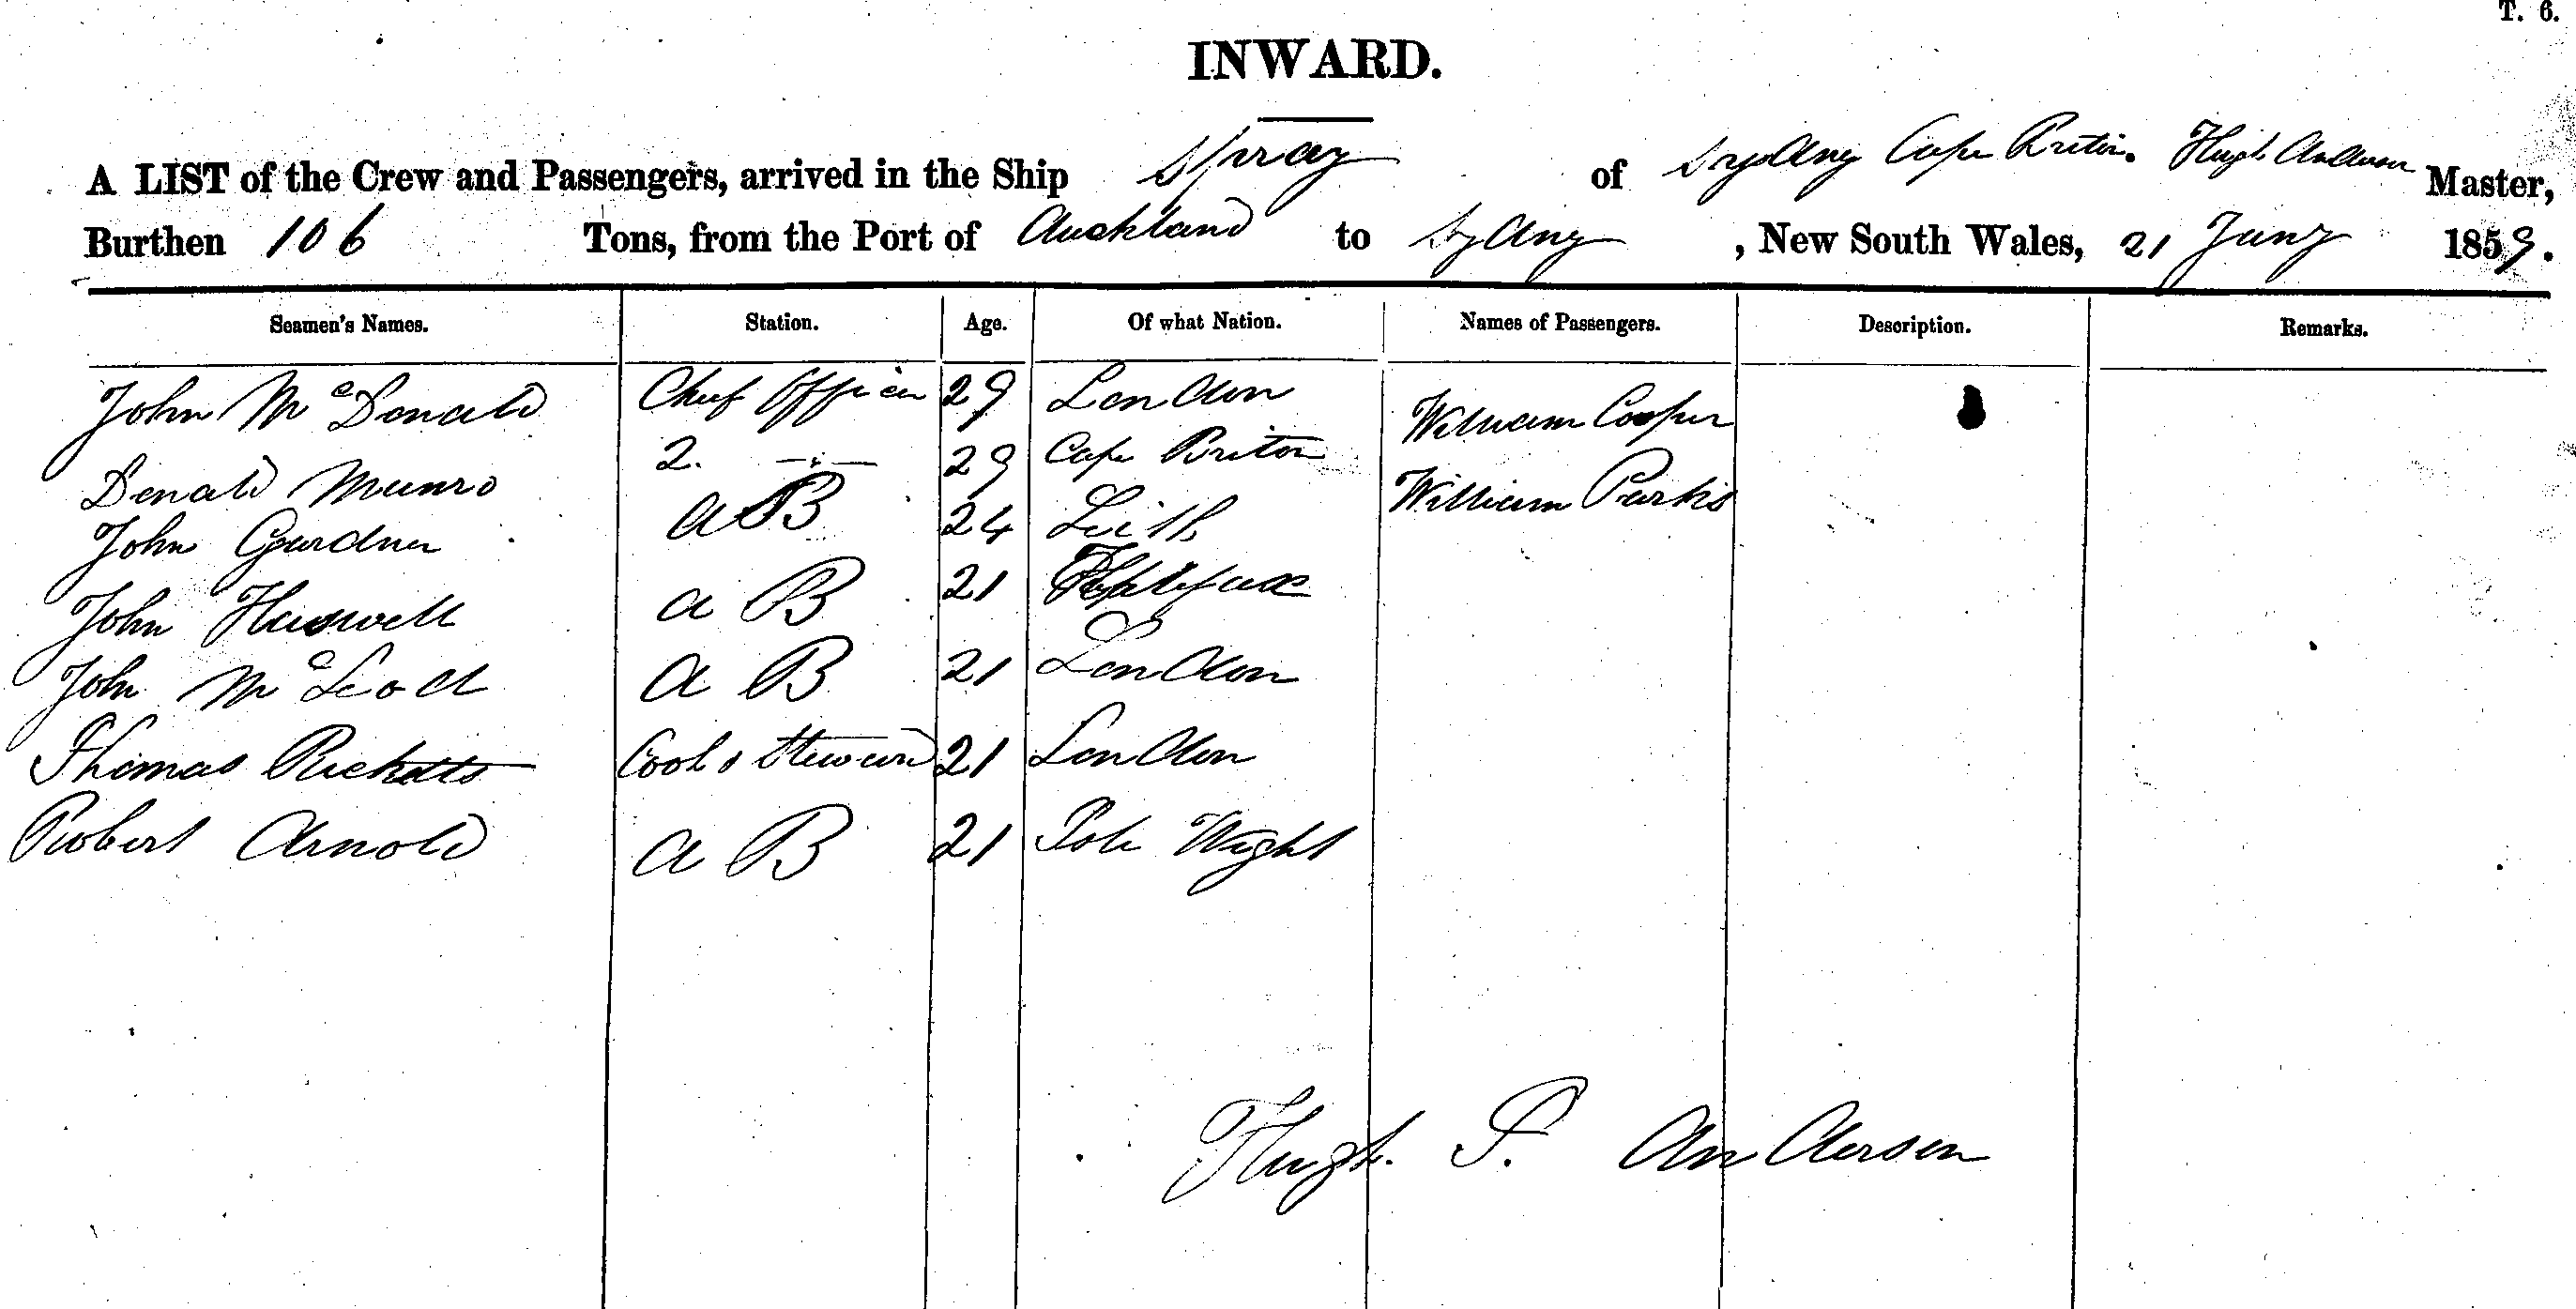 T. 6.
INWARD.
A LIST of the Crew and Passengers, arrived in the Ship Spray of Sydney Cape Briton. Hugh Anderson Master,
Burthen 106 Tons, from the Port of Auckland to Sydney, New South Wales, 21 Jany 1859.
Seamen's Names. Station. Age. Of what Nation. Names of Passengers. Description. Remarks.
John McDonald Chief Officer 29 London William Cooper
Donald Munro 2. —"— 29 Cape Briton William Parkis
John Gardner a B 24 Leith
John Haswell a B 21 Halifax
John McLeod a B 21 London
Thomas Ricketts Cook & Steward 21 London
Robert Arnold a B 21 Isle Wight
Hugh. P. Anderson